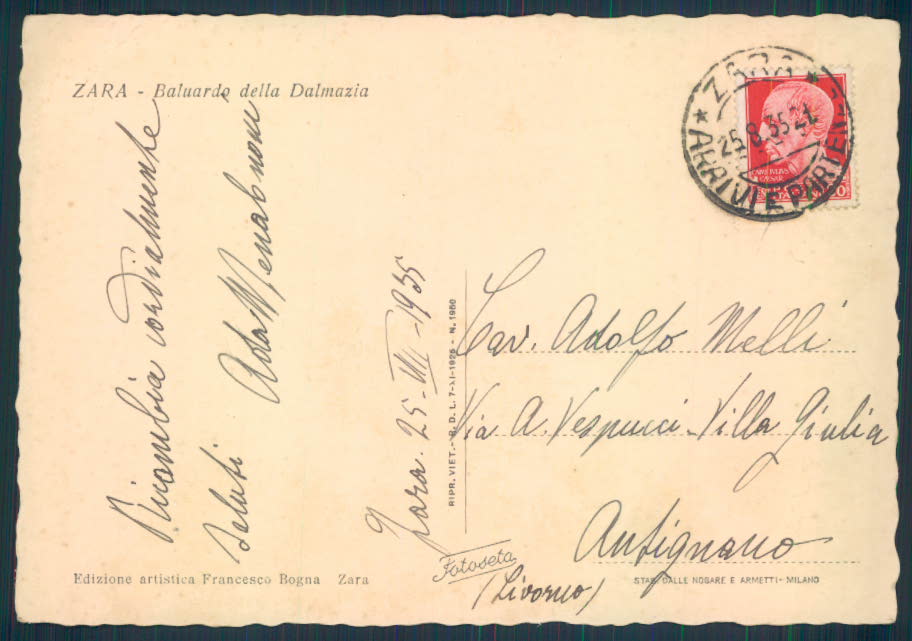 ZARA - Baluardo della Dalmazia
Ricambia cordialmente
Saluti Ada
Zara. 25-VIII-1935
RIPR. VIET. - R. D. L. 7-XI-1925 - N. 1950
ZARA
25.8.35.21
ARRIVI E PARTENZE
Cav. Adolfo Melli
Via A. Vespucci - Villa Giulia
Antignano
(Livorno)
Edizione artistica Francesco Bogna Zara
Fotoseta
STAB. DALLE NOGARE E ARMETTI - MILANO